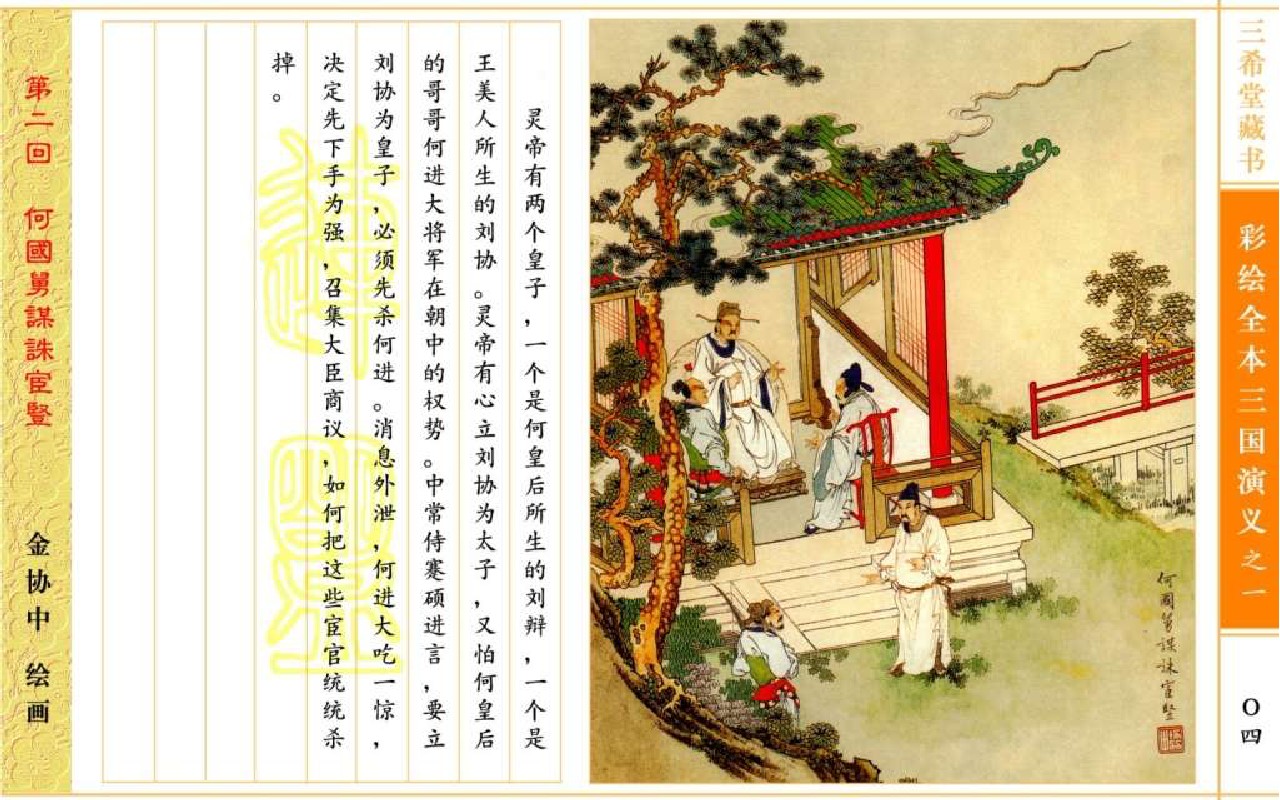 三希堂藏书
彩绘全本三国演义之一
〇四
何國舅謀誅宦豎
灵帝有两个皇子，一个是何皇后所生的刘辩，一个是
王美人所生的刘协。灵帝有心立刘协为太子，又怕何皇后
的哥哥何进大将军在朝中的权势。中常侍蹇硕进言，要立
刘协为皇子，必须先杀何进。消息外泄，何进大吃一惊，
决定先下手为强，召集大臣商议，如何把这些宦官统统杀
掉。
第二回 何國舅謀誅宦豎
金协中 绘画